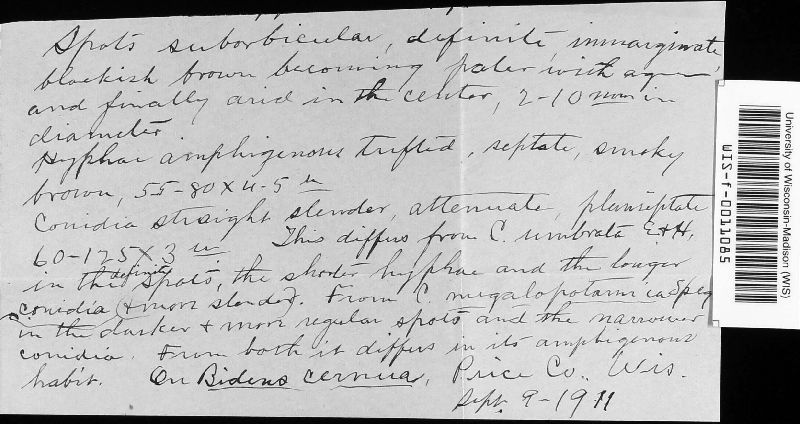 Spots suborbicular, definite, immarginate
blackish brown becoming paler with age
and finally arid in the center, 2-10 mm in
diameter
Hyphae amphigenous tufted, septate, smoky
brown, 55-80 x 4-5 u
Conidia straight slender, attenuate, pluriseptate
60-125 x 3 u This differs from C. umbrata E & H,
in the definite spots, the shorter hyphae and the longer
conidia (& more slender). From C. megalopotamica Speg
in the darker & more regular spots and the narrower
conidia. From both it differs in its amphigenous
habit. On Bidens cernua, Price Co., Wis.
Sept. 9-1911
University of Wisconsin-Madison (WIS)
WIS-f-0011085